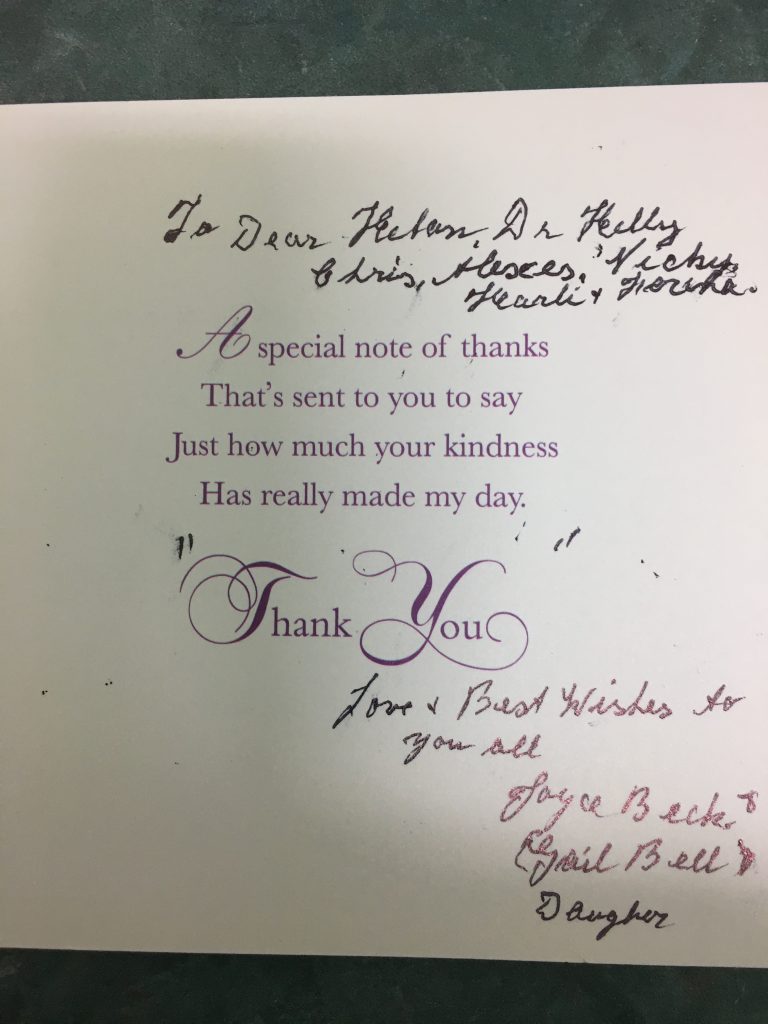 To Dear Helen, Dr Kelly
Chris, Alexes, Nicky,
Karli &
A special note of thanks
That's sent to you to say
Just how much your kindness
Has really made my day.
" "
Thank You
Love & Best Wishes to
you all
Joyce Beck. &
(Gail Bell)
Daugher